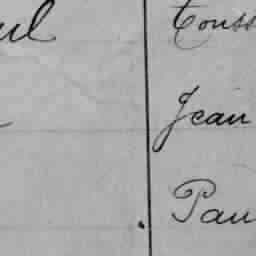 Touss
Jean
Pau